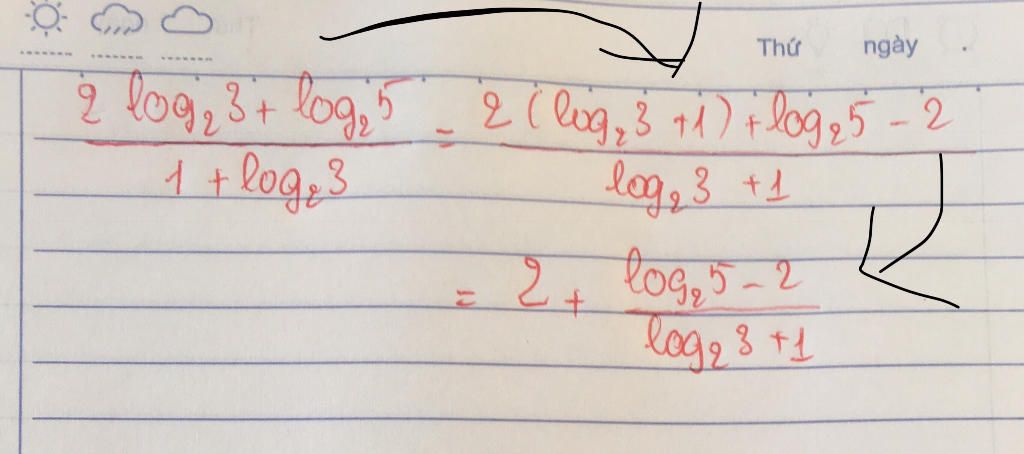 Thứ ngày .
2 log₂3 + log₂5 = 2 (log₂3 +1) + log₂5 - 2
1 + log₂3 log₂3 +1
= 2 + log₂5 - 2
log₂3 +1